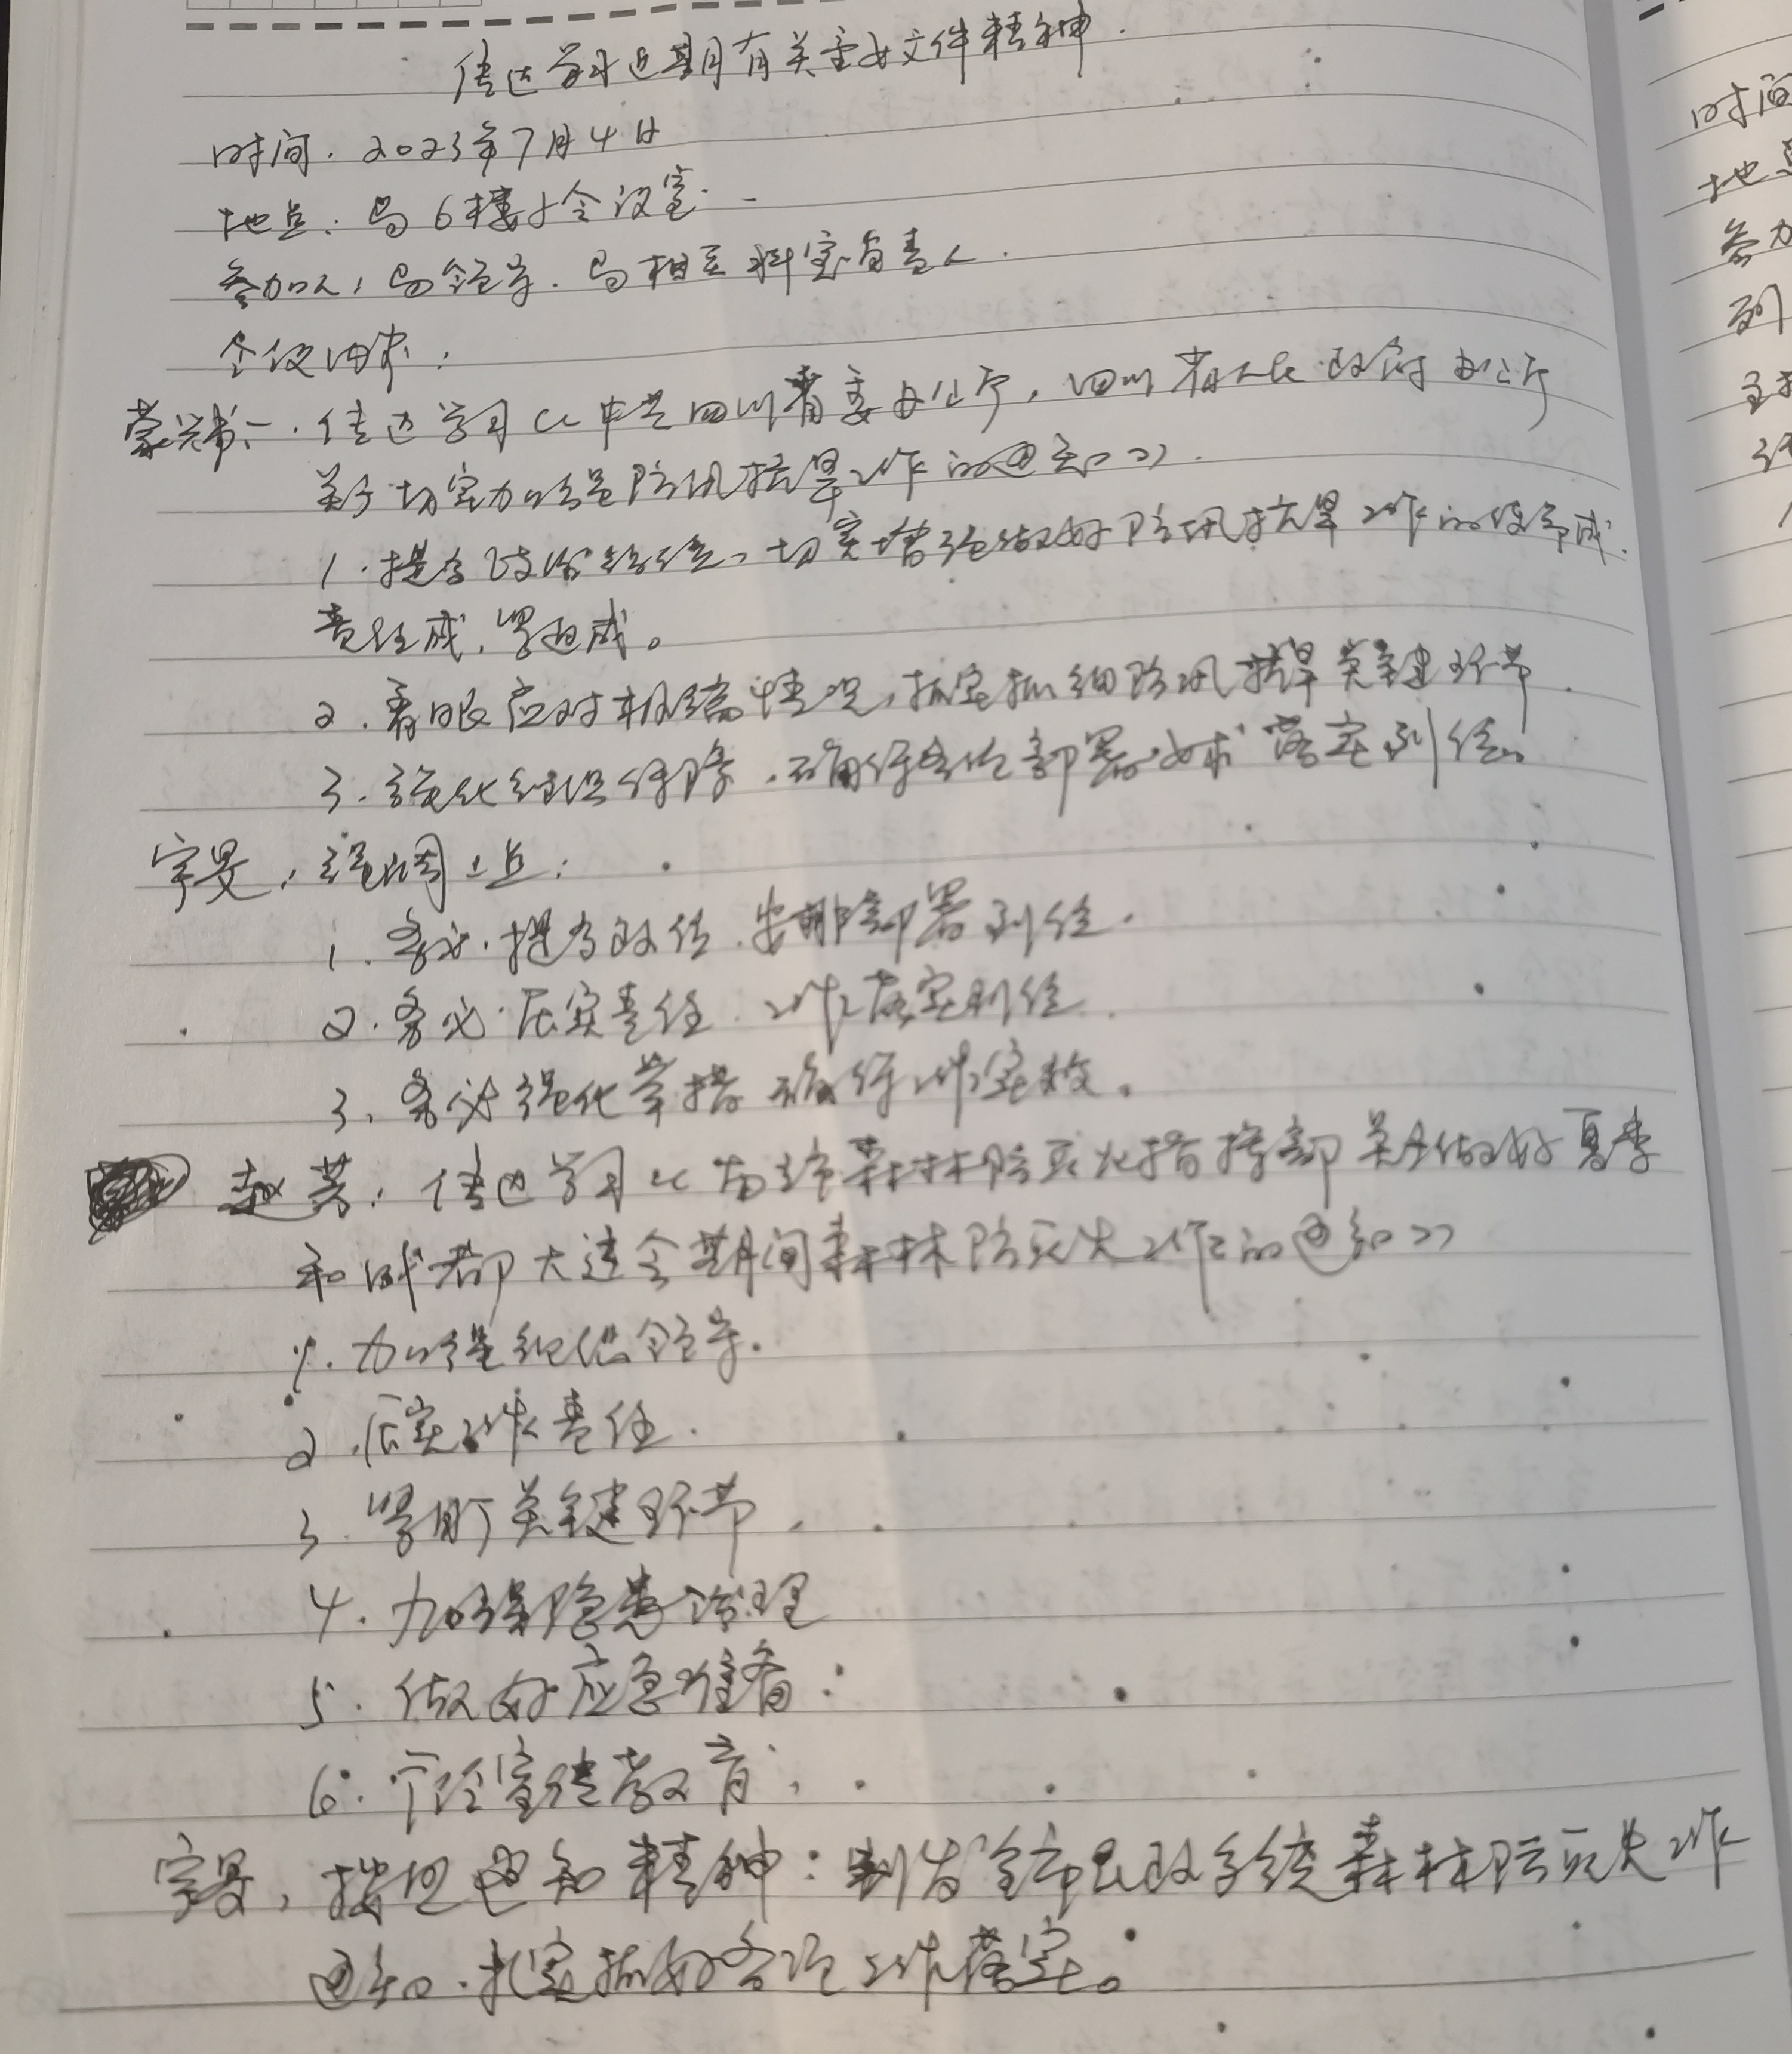 传达学习近期有关重要文件精神.
时间.2023年7月4日
地点:局6楼小会议室.
参加人:局领导.局相关科室负责人.
会议内容:
蒙兴书:一.传达学习《中共四川省委办公厅,四川省人民政府办公厅
关于切实加强防汛抗旱工作的通知》.
1.提高政治站位、切实增强做好防汛抗旱工作的使命感.
责任感,紧迫感。
2.着眼应对极端情况,抓实抓细防汛抗旱关键环节.
3.强化组织保障.确保各位部署要求落实到位。
宇旻:强调三点:
1.务必.提高政位.安排部署到位.
2.务必.压实责任.工作落实到位.
3.务必强化举措 确保工作实效。
赵芸:传达学习《省森林防灭火指挥部关于做好夏季
和成都大运会期间森林防灭火工作的通知》
1.加强组织领导.
2.压实工作责任.
3.紧盯关键环节.
4.加强隐患治理
5.做好应急准备:
6.宣传教育,
宇旻:按照通知精神:制发全市民政系统森林防灭火工作
通知.扎实抓好各项工作落实。
时间
地点
参加
列
主持